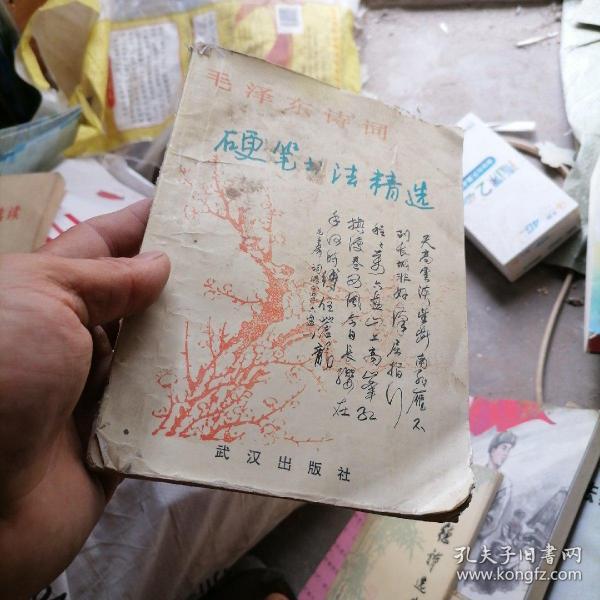 毛泽东诗词
硬笔书法精选
天高雲淡望断南飛雁不
到长城非好漢屈指行
程二萬六盘山上高峯红
旗漫卷西風今日长缨在
手何时缚住蒼龍
武汉出版社
4G
孔夫子旧书网
www.kongfz.com